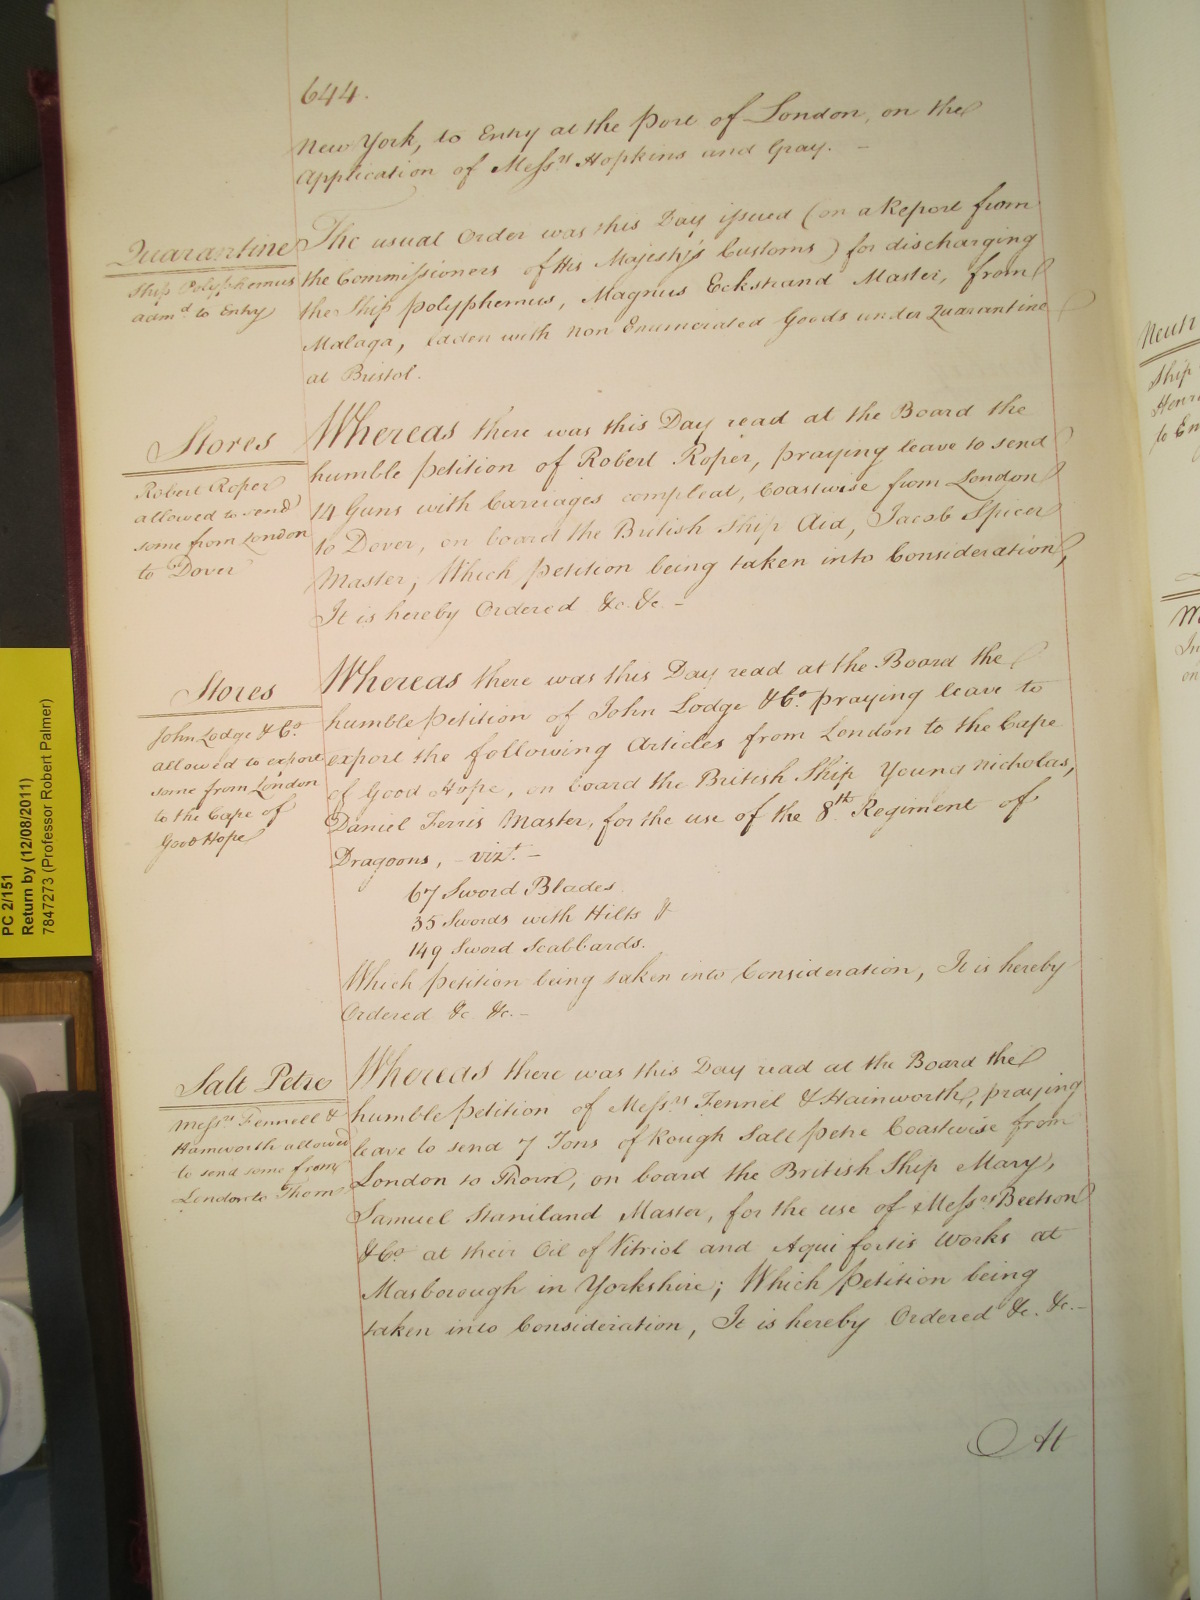 644.
New York, to Entry at the Port of London, on the
Application of Mess.rs Hopkins and Gray. –
Quarantine
Ship Polyphemus
adm.d to Entry
The usual Order was this Day issued (on a Report from
the Commissioners of His Majesty's Customs) for discharging
the Ship Polyphemus, Magnus Eckstrand Master, from
Malaga, laden with non Enumerated Goods under Quarantine
at Bristol.
Stores
Robert Roper
allowed to send
some from London
to Dover
Whereas there was this Day read at the Board the
humble petition of Robert Roper, praying leave to send
14 Guns with Carriages compleat, Coastwise from London
to Dover, on board the British Ship Aid, Jacob Spicer
Master, Which petition being taken into Consideration,
It is hereby Ordered &c. &c. –
Stores
John Lodge & Co.
allowed to export
some from London
to the Cape of
Good Hope
Whereas there was this Day read at the Board the
humble petition of John Lodge & Co. praying leave to
export the following Articles from London to the Cape
of Good Hope, on board the British Ship Young Nicholas,
Daniel Ferris Master, for the use of the 8th Regiment of
Dragoons, – vizt. –
67 Sword Blades
35 Swords with Hilts &
149 Sword Scabbards.
Which petition being taken into Consideration, It is hereby
Ordered &c &c. –
Salt Petre
Mess.rs Fennell &
Hainworth allowed
to send some from
London to Thorn
Whereas there was this Day read at the Board the
humble petition of Mess.rs Fennel & Hainworth, praying
leave to send 7 Tons of Rough Salt petre Coastwise from
London to Thorn, on board the British Ship Mary,
Samuel Staniland Master, for the use of Mess.rs Beetson
& Co. at their Oil of Vitriol and Aqui fortis Works at
Masborough in Yorkshire; Which petition being
taken into Consideration, It is hereby Ordered &c. &c. –
At
PC 2/151
Return by (12/08/2011)
7847273 (Professor Robert Palmer)
Ship
to En